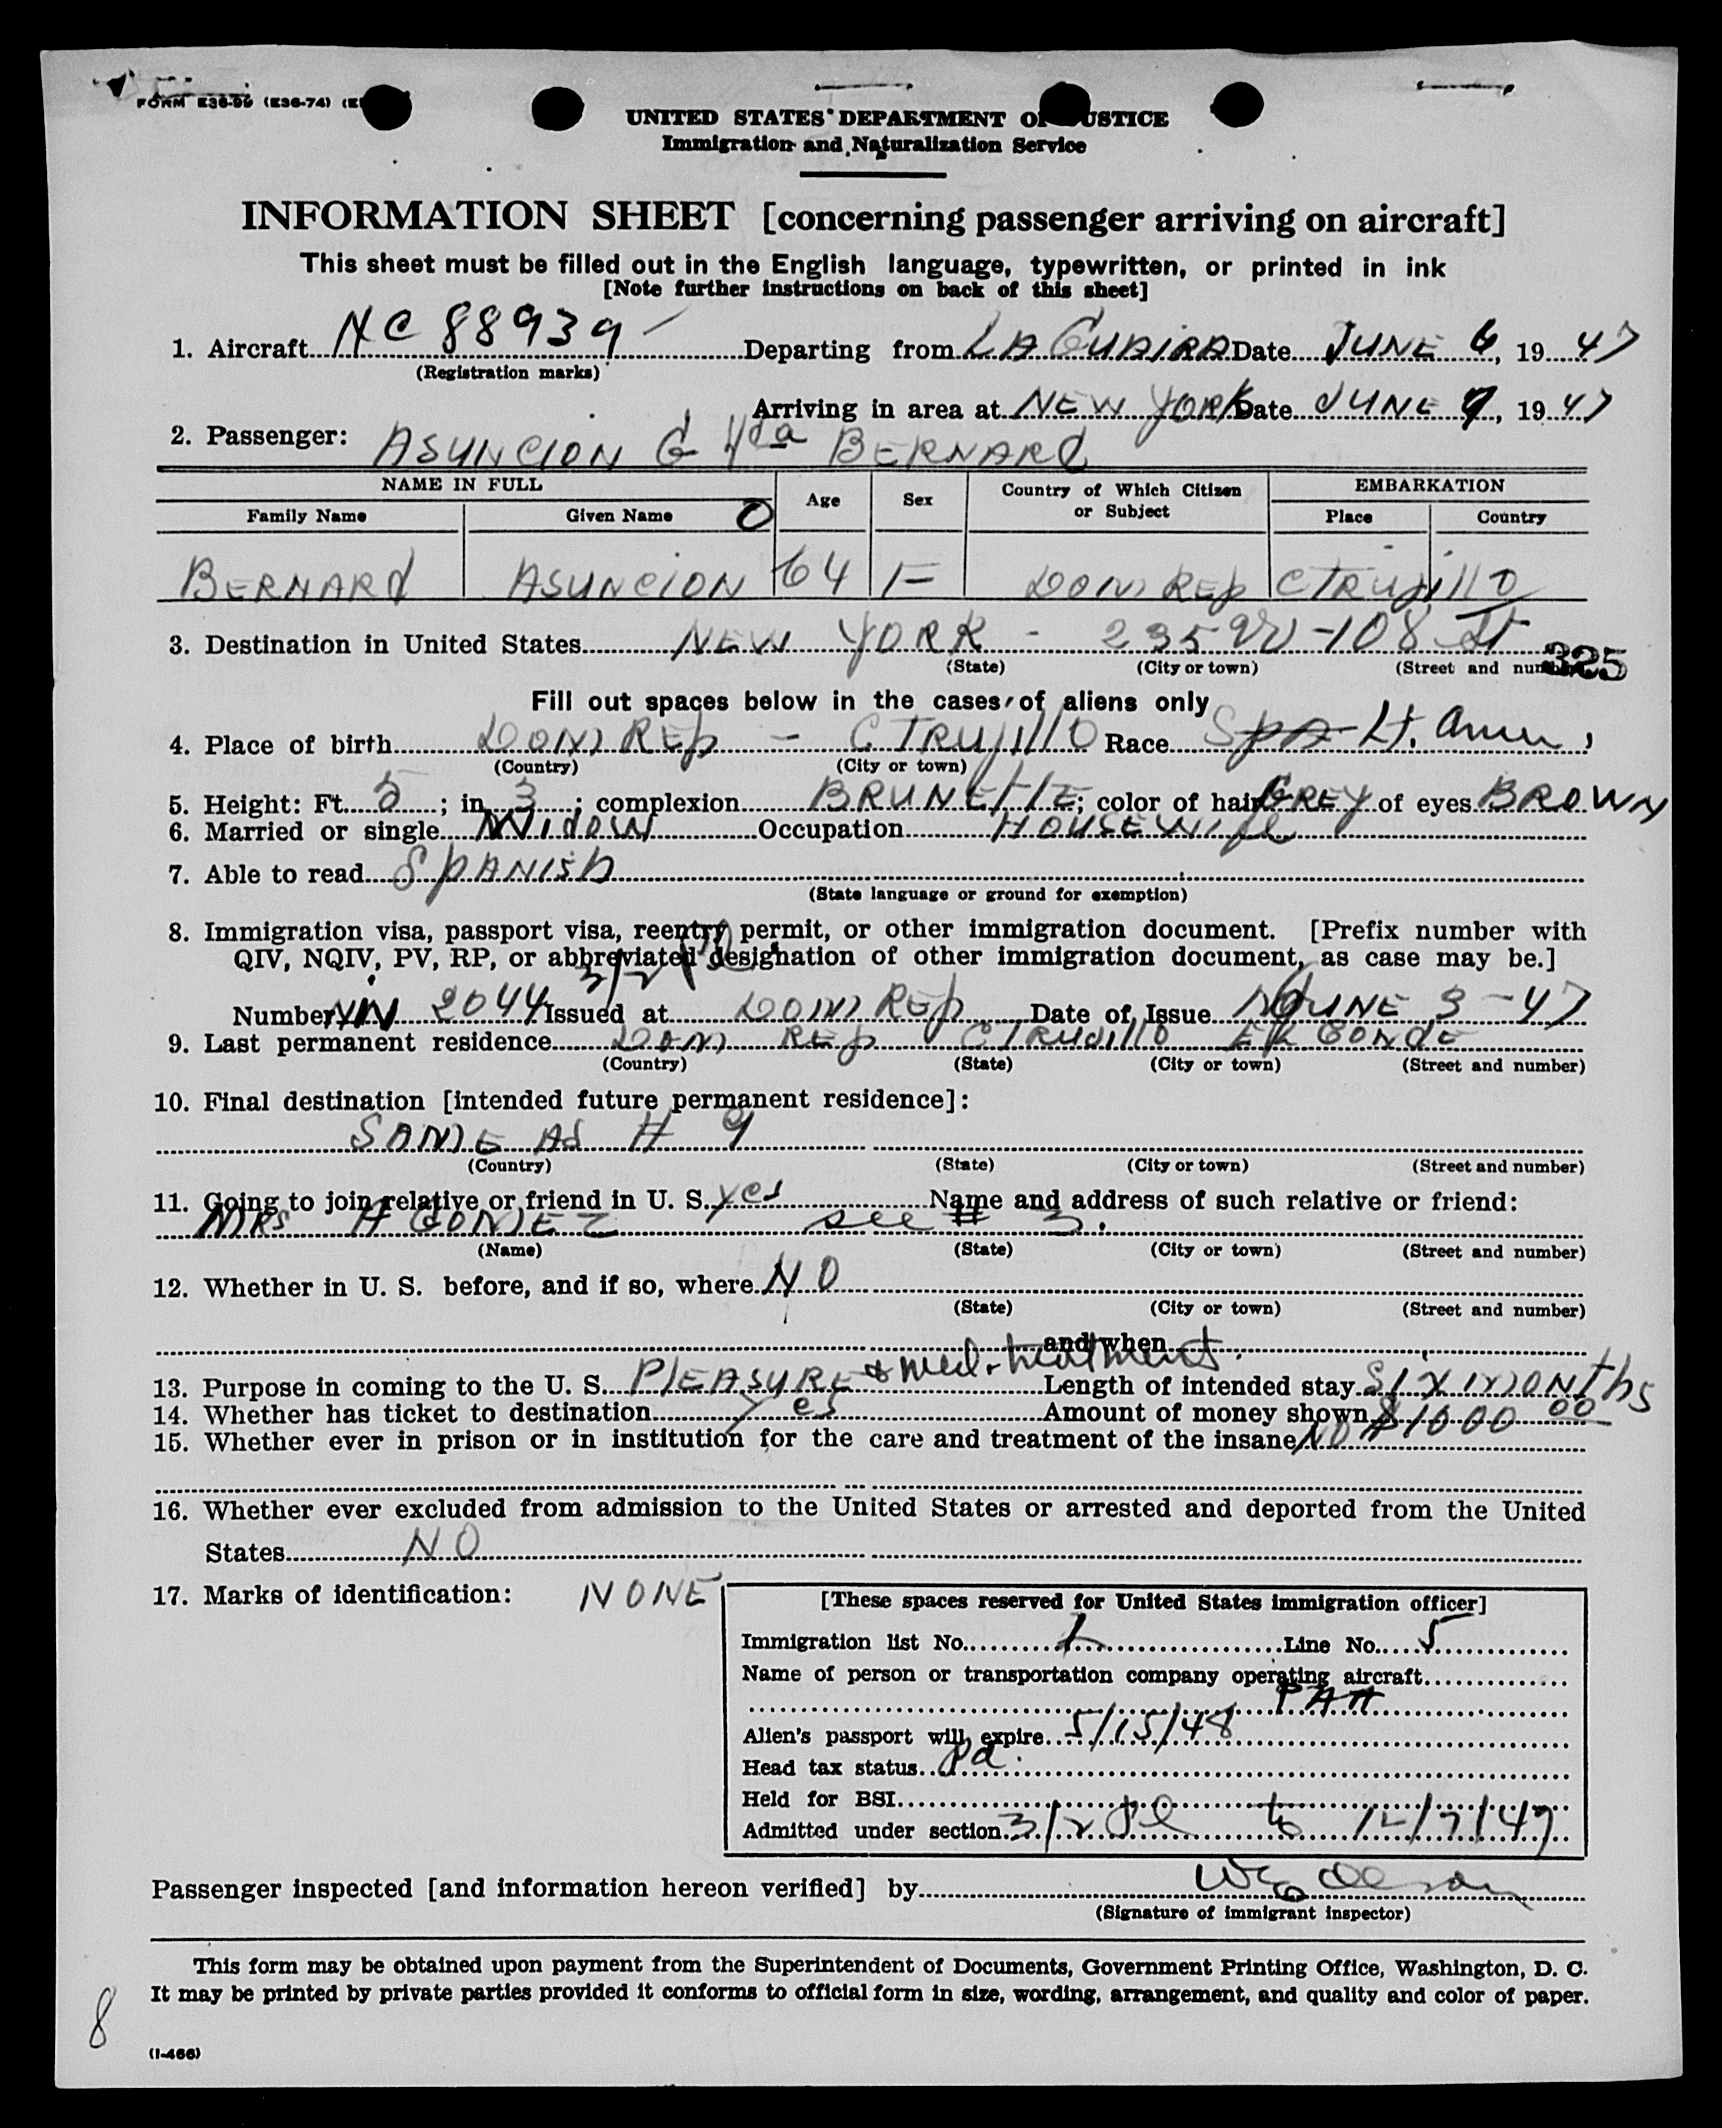 FORM E36-99 (E36-74)
UNITED STATES DEPARTMENT OF JUSTICE
Immigration and Naturalization Service
INFORMATION SHEET [concerning passenger arriving on aircraft]
This sheet must be filled out in the English language, typewritten, or printed in ink
[Note further instructions on back of this sheet]
1. Aircraft NC 88939 Departing from LA GUAIRA Date JUNE 6, 19 47
(Registration marks)
Arriving in area at NEW YORK Date JUNE 7, 19 47
2. Passenger: ASUNCION G Vda BERNARD
NAME IN FULL Age Sex Country of Which Citizen or Subject EMBARKATION
Family Name Given Name Place Country
BERNARD ASUNCION 64 F DOM REP C TRUJILLO
3. Destination in United States NEW YORK - 235 W - 108 St
(State) (City or town) (Street and number) 325
Fill out spaces below in the cases of aliens only
4. Place of birth DOM REP - C TRUJILLO Race Spa Lt. Amer,
(Country) (City or town)
5. Height: Ft. 5; in. 3; complexion BRUNETTE; color of hair GREY of eyes BROWN
6. Married or single Widow Occupation HOUSEWIFE
7. Able to read SPANISH
(State language or ground for exemption)
8. Immigration visa, passport visa, reentry permit, or other immigration document. [Prefix number with
QIV, NQIV, PV, RP, or abbreviated designation of other immigration document, as case may be.]
3/2 Pl
Number 2044 Issued at DOM REP Date of Issue JUNE 3-47
9. Last permanent residence DOM REP C TRUJILLO EL CONDE
(Country) (State) (City or town) (Street and number)
10. Final destination [intended future permanent residence]:
SAME AS # 9
(Country) (State) (City or town) (Street and number)
11. Going to join relative or friend in U. S. yes Name and address of such relative or friend:
MRS A GOMEZ see # 3.
(Name) (State) (City or town) (Street and number)
12. Whether in U. S. before, and if so, where NO
(State) (City or town) (Street and number)
and when
13. Purpose in coming to the U. S. PLEASURE & med. treatment. Length of intended stay SIX MONTHS
14. Whether has ticket to destination yes Amount of money shown $1000 00
15. Whether ever in prison or in institution for the care and treatment of the insane NO
16. Whether ever excluded from admission to the United States or arrested and deported from the United
States NO
17. Marks of identification: NONE
[These spaces reserved for United States immigration officer]
Immigration list No. 1 Line No. 5
Name of person or transportation company operating aircraft
PAA
Alien's passport will expire 5/15/48
Head tax status pd.
Held for BSI
Admitted under section 3/2 Pl to 12/7/47
Passenger inspected [and information hereon verified] by
(Signature of immigrant inspector)
This form may be obtained upon payment from the Superintendent of Documents, Government Printing Office, Washington, D. C.
It may be printed by private parties provided it conforms to official form in size, wording, arrangement, and quality and color of paper.
8
(I-466)